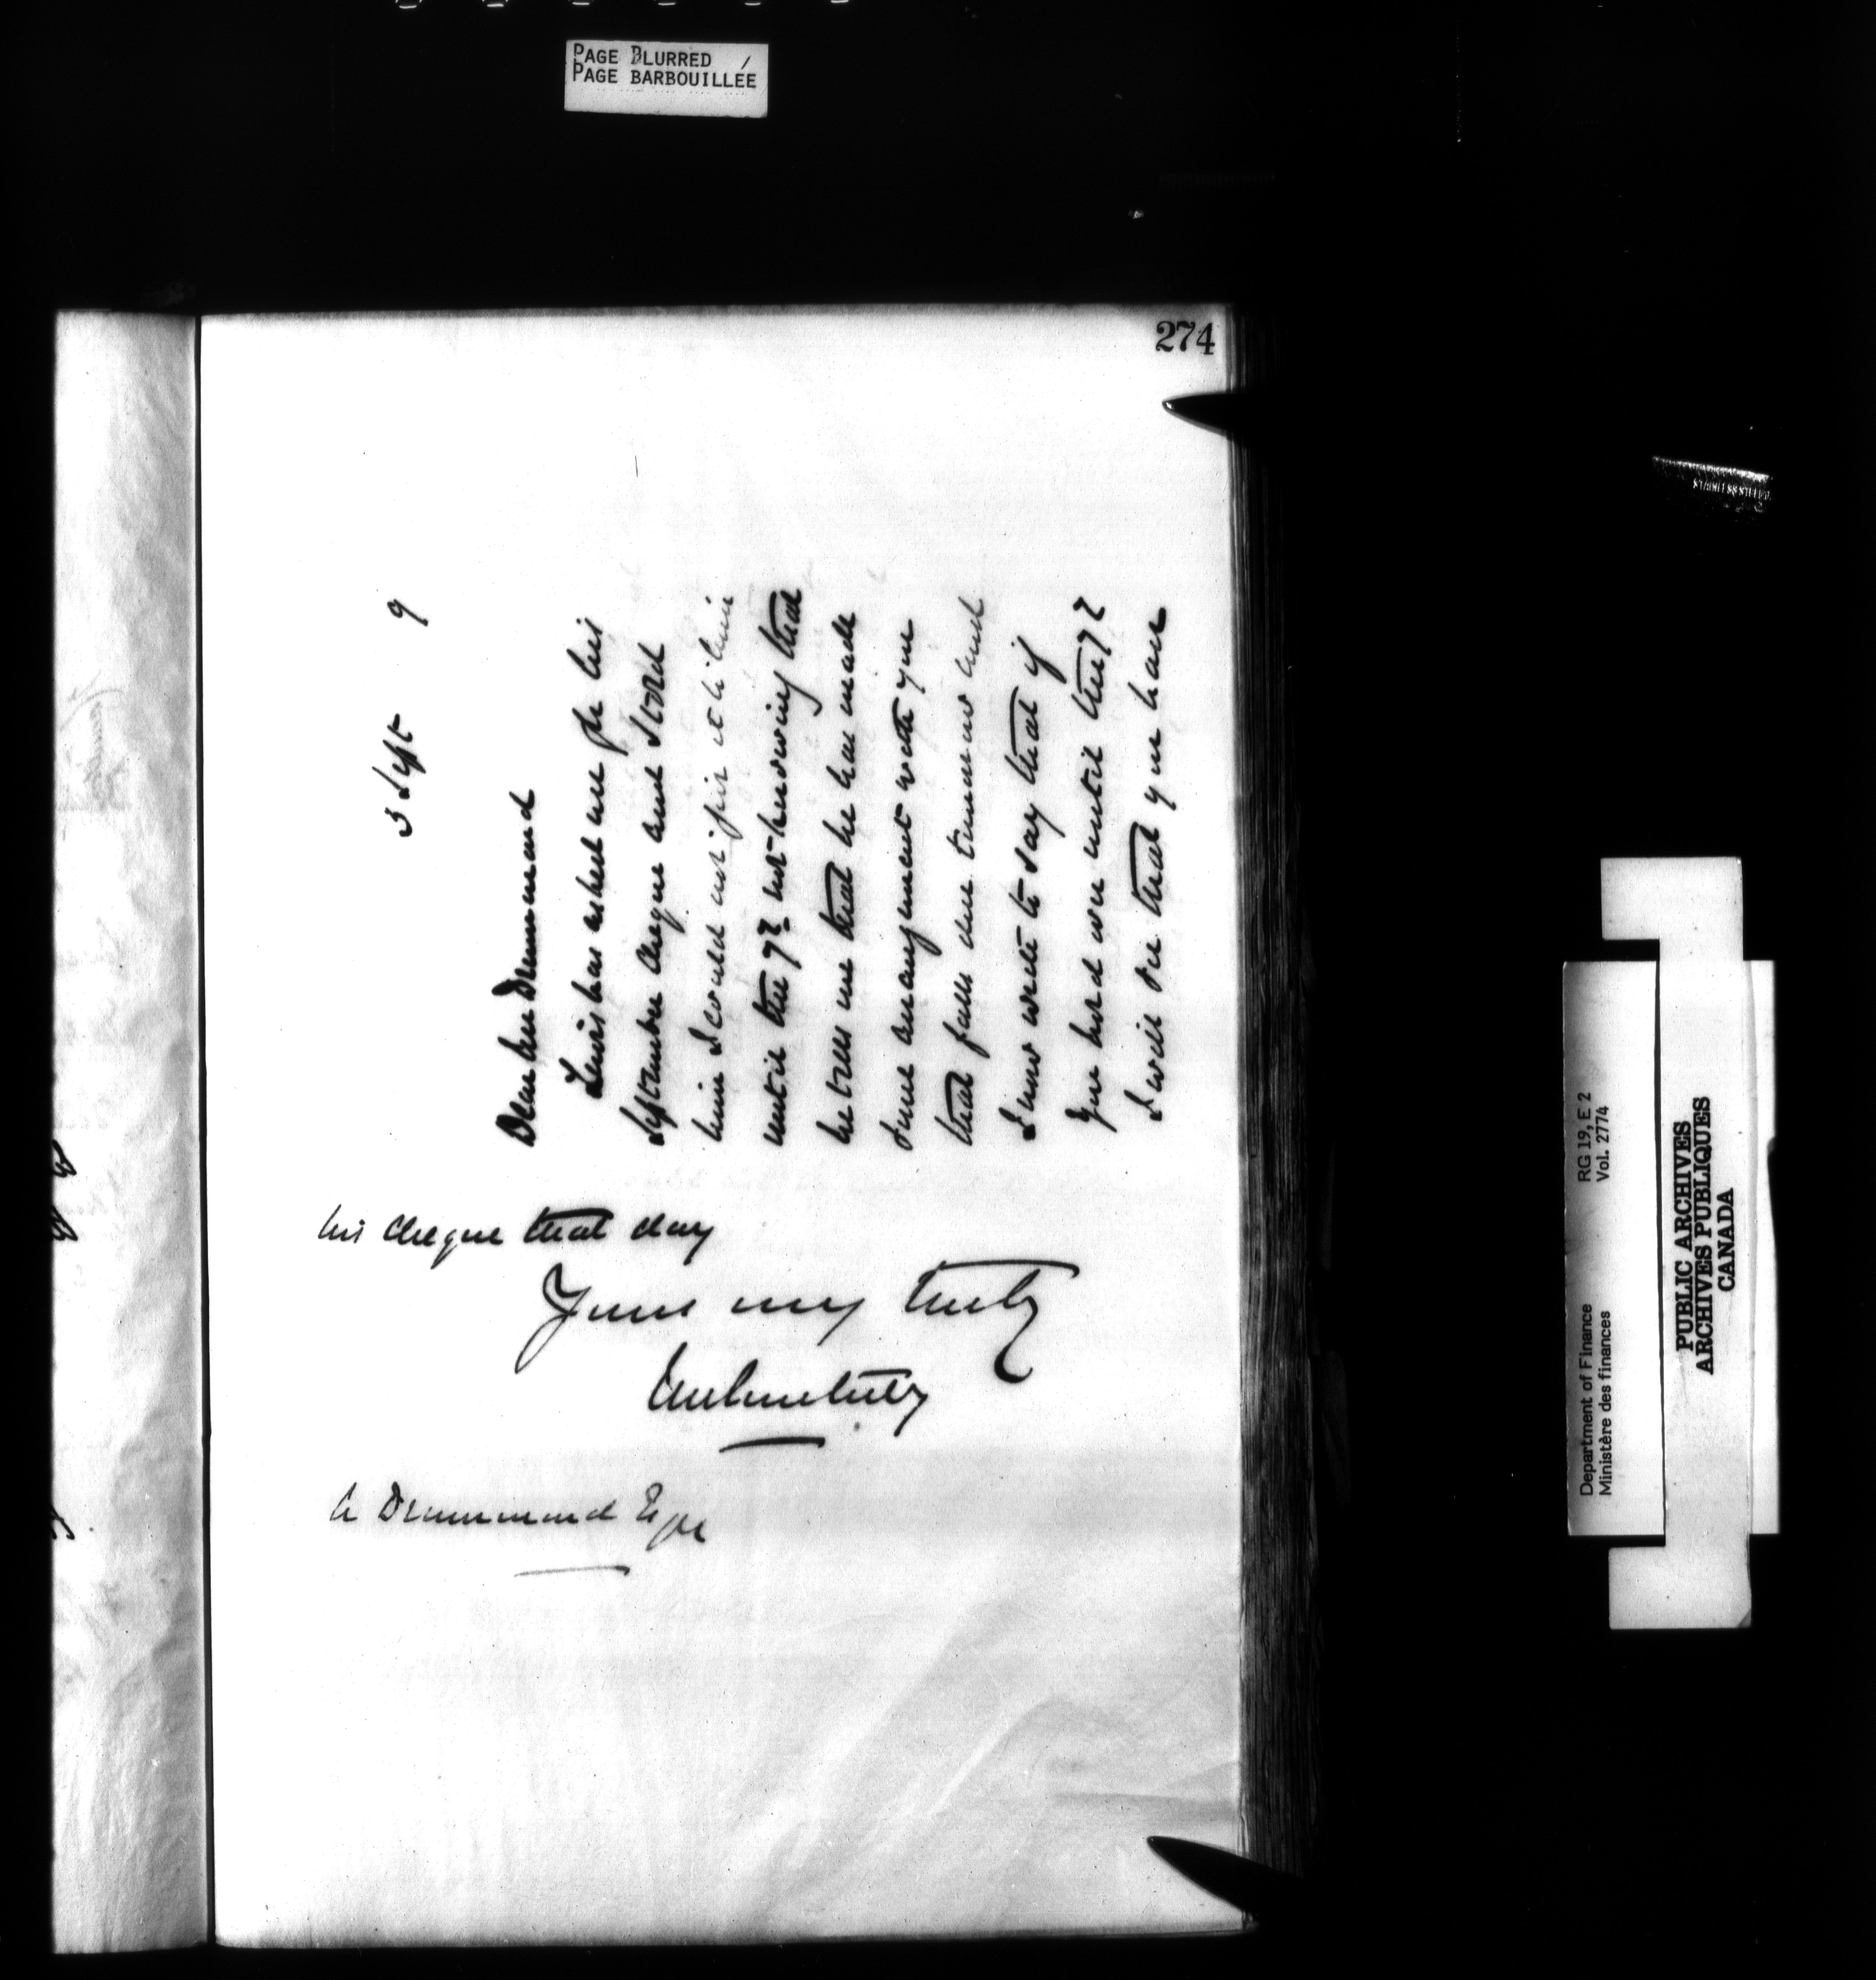 PAGE BLURRED
PAGE BARBOUILLÉE
274
3 Sept 9
Dear Mr Drummond
Lewis has asked me for his
September cheque and I told
him I could not give it to him
until the 9th not knowing that
he tells me that he has made
some arrangement with you
that falls due tomorrow and
I now write to say that if
you hold over until the 9th
I will see that you have
his cheque that day
Yours very truly
A Drummond Esqr
Department of Finance RG 19, E 2
Ministère des finances Vol. 2774
PUBLIC ARCHIVES
ARCHIVES PUBLIQUES
CANADA